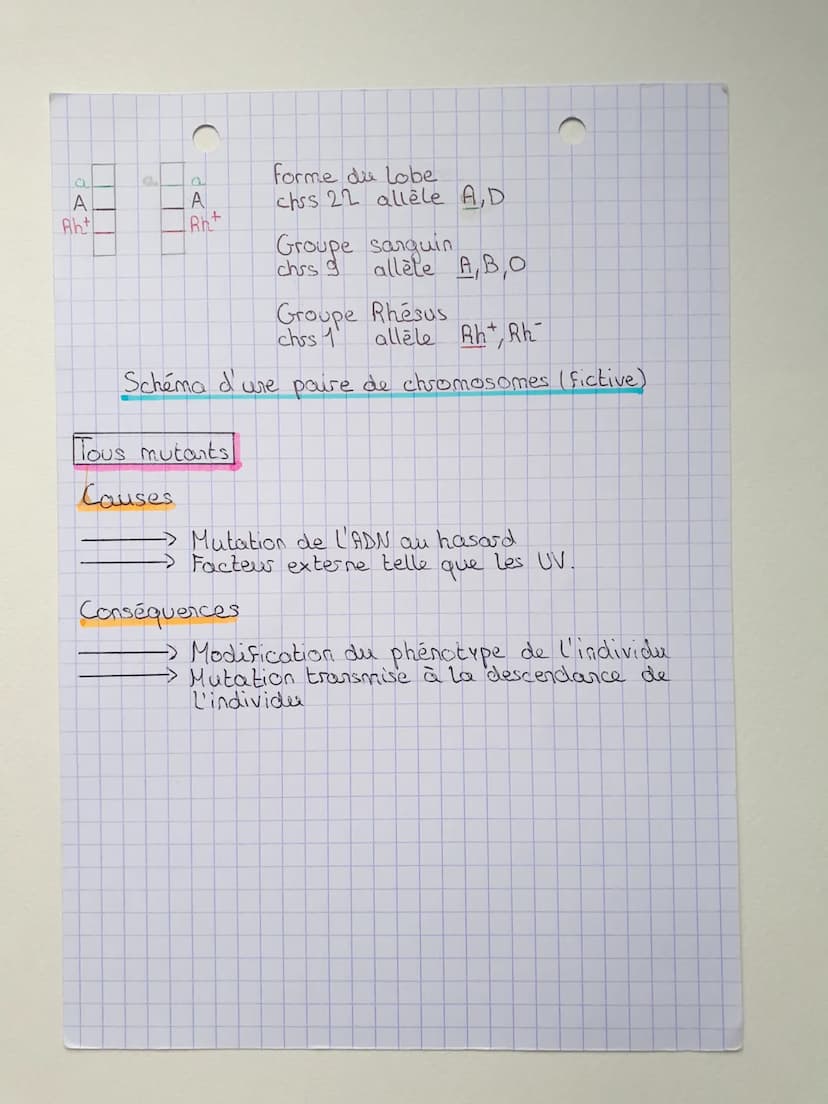 a
A
Rh+
a
A
Rh+
forme du lobe
chrs 22 allèle A,D
Groupe sanguin
chrs 9 allèle A,B,O
Groupe Rhésus
chrs 1 allèle Rh+,Rh-
Schéma d'une paire de chromosomes (fictive)
Tous mutants
Causes
→ Mutation de l'ADN au hasard
→ Facteur externe telle que les UV.
Conséquences
→ Modification du phénotype de l'individu
→ Mutation transmise à la descendance de
l'individu